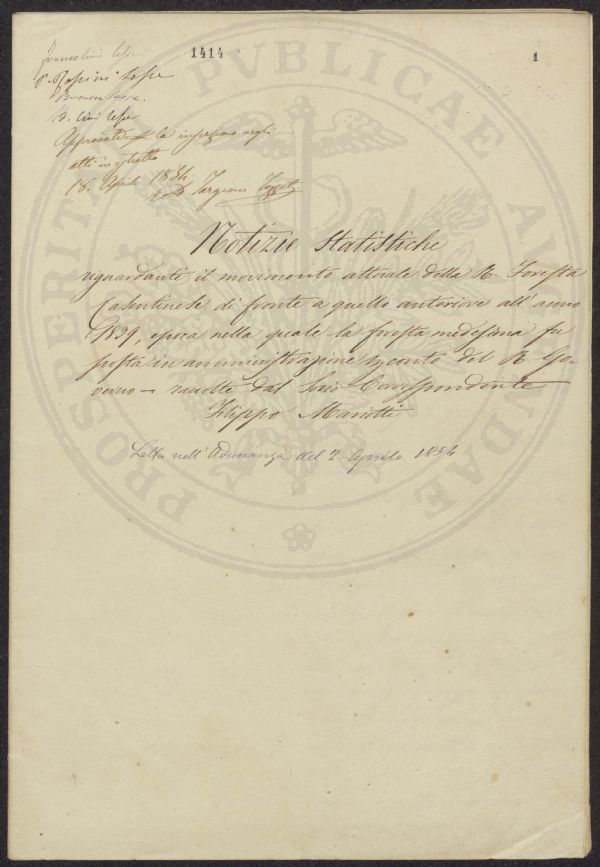 1414
1
P. Rossini lesse
B. Cini lesse
Approvata la inserzione negli
atti in estratto
18. Aprile 1854
Targioni
Notizie Statistiche
riguardanti il movimento attuale della R. Foresta
Casentinese di fronte a quello anteriore all'anno
1839, epoca nella quale la foresta medesima fu
posta in amministrazione per conto del R. Go-
verno - raccolte dal Socio Corrispondente
Filippo Mariotti
Letta nell'Adunanza del 2 Aprile 1854
PROSPERITATI PUBLICAE AUGENDAE